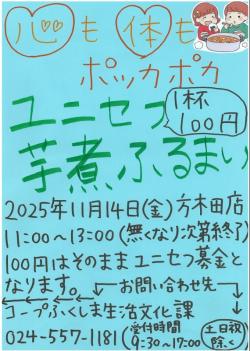 心も体も
ポッカポカ
ユニセフ
1杯
100円
芋煮ふるまい
2025年11月14日(金)方木田店
11:00〜13:00(無くなり次第終了)
100円はそのままユニセフ募金と
なります。
お問い合わせ先
コープふくしま生活文化課
024-557-1181
受付時間
9:30〜17:00
土日祝
除く